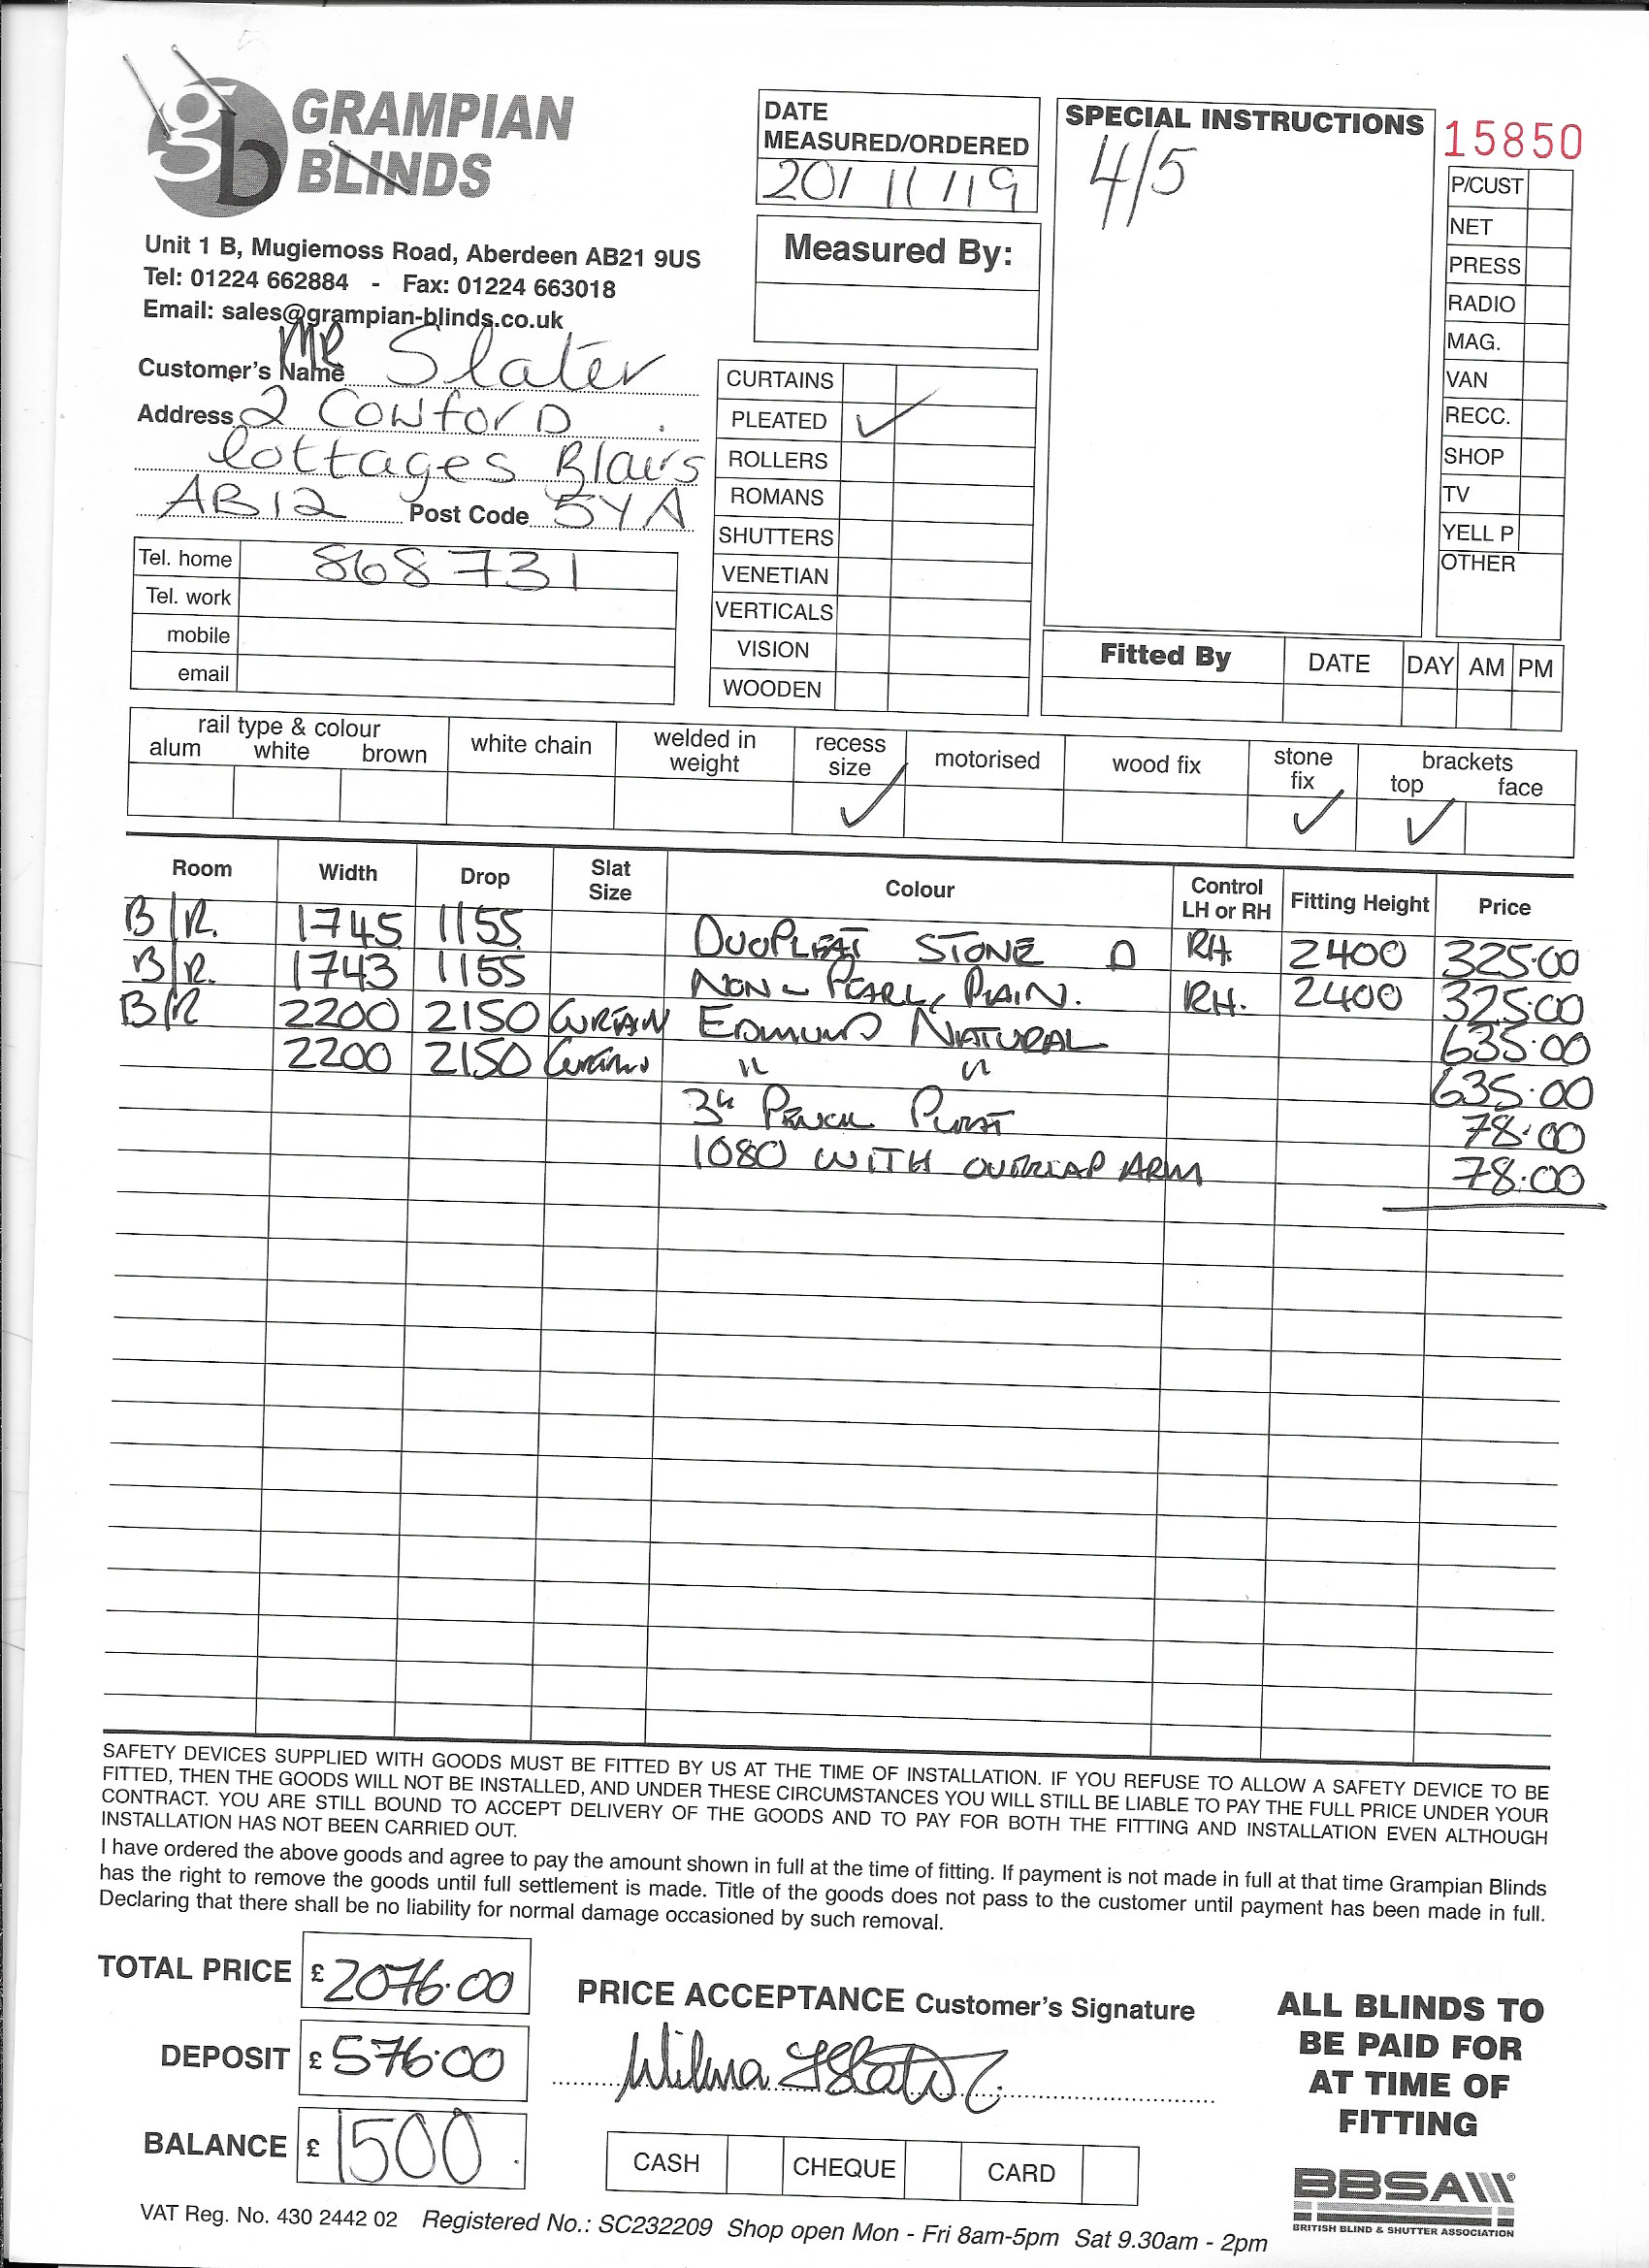 gb GRAMPIAN
BLINDS
Unit 1 B, Mugiemoss Road, Aberdeen AB21 9US
Tel: 01224 662884 - Fax: 01224 663018
Email: sales@grampian-blinds.co.uk
Customer's Name MR Slater
Address 2 Cowford
Cottages Blairs
AB12 Post Code 5YA
Tel. home 868731
Tel. work
mobile
email
DATE
MEASURED/ORDERED
20/11/19
Measured By:
CURTAINS
PLEATED ✓
ROLLERS
ROMANS
SHUTTERS
VENETIAN
VERTICALS
VISION
WOODEN
SPECIAL INSTRUCTIONS
4/5
15850
P/CUST
NET
PRESS
RADIO
MAG.
VAN
RECC.
SHOP
TV
YELL P
OTHER
Fitted By DATE DAY AM PM
rail type & colour
alum white brown
white chain
welded in
weight
recess
size ✓
motorised
wood fix
stone
fix ✓
brackets
top ✓ face
Room Width Drop Slat Size Colour Control LH or RH Fitting Height Price
B/R. 1745 1155 DUOPLEAT STONE D RH 2400 325.00
B/R. 1743 1155 NON - PEARL, PLAIN. RH. 2400 325.00
B/R 2200 2150 CURTAIN EDMUND NATURAL 635.00
2200 2150 Curtains " " 635.00
3" PENCIL PLEAT 78.00
1080 WITH OVERLAP ARM 78.00
SAFETY DEVICES SUPPLIED WITH GOODS MUST BE FITTED BY US AT THE TIME OF INSTALLATION. IF YOU REFUSE TO ALLOW A SAFETY DEVICE TO BE
FITTED, THEN THE GOODS WILL NOT BE INSTALLED, AND UNDER THESE CIRCUMSTANCES YOU WILL STILL BE LIABLE TO PAY THE FULL PRICE UNDER YOUR
CONTRACT. YOU ARE STILL BOUND TO ACCEPT DELIVERY OF THE GOODS AND TO PAY FOR BOTH THE FITTING AND INSTALLATION EVEN ALTHOUGH
INSTALLATION HAS NOT BEEN CARRIED OUT.
I have ordered the above goods and agree to pay the amount shown in full at the time of fitting. If payment is not made in full at that time Grampian Blinds
has the right to remove the goods until full settlement is made. Title of the goods does not pass to the customer until payment has been made in full.
Declaring that there shall be no liability for normal damage occasioned by such removal.
TOTAL PRICE £ 2076.00
DEPOSIT £ 576.00
BALANCE £ 1500.
PRICE ACCEPTANCE Customer's Signature
Wilma Slater
CASH CHEQUE CARD
ALL BLINDS TO
BE PAID FOR
AT TIME OF
FITTING
BBSA
BRITISH BLIND & SHUTTER ASSOCIATION
VAT Reg. No. 430 2442 02 Registered No.: SC232209 Shop open Mon - Fri 8am-5pm Sat 9.30am - 2pm